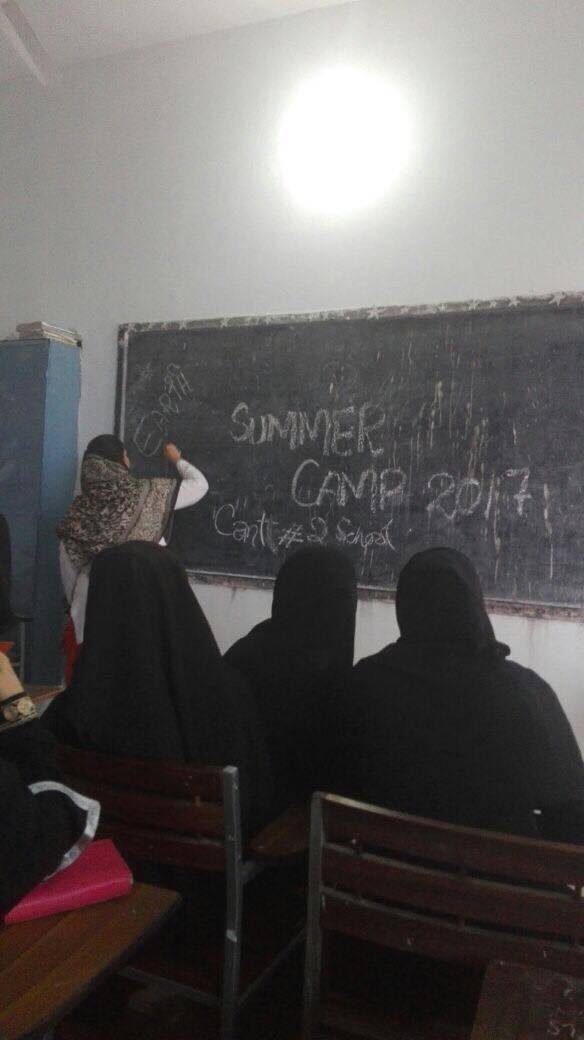 EARTH
SUMMER
CAMP 2017
Cantt #2 School